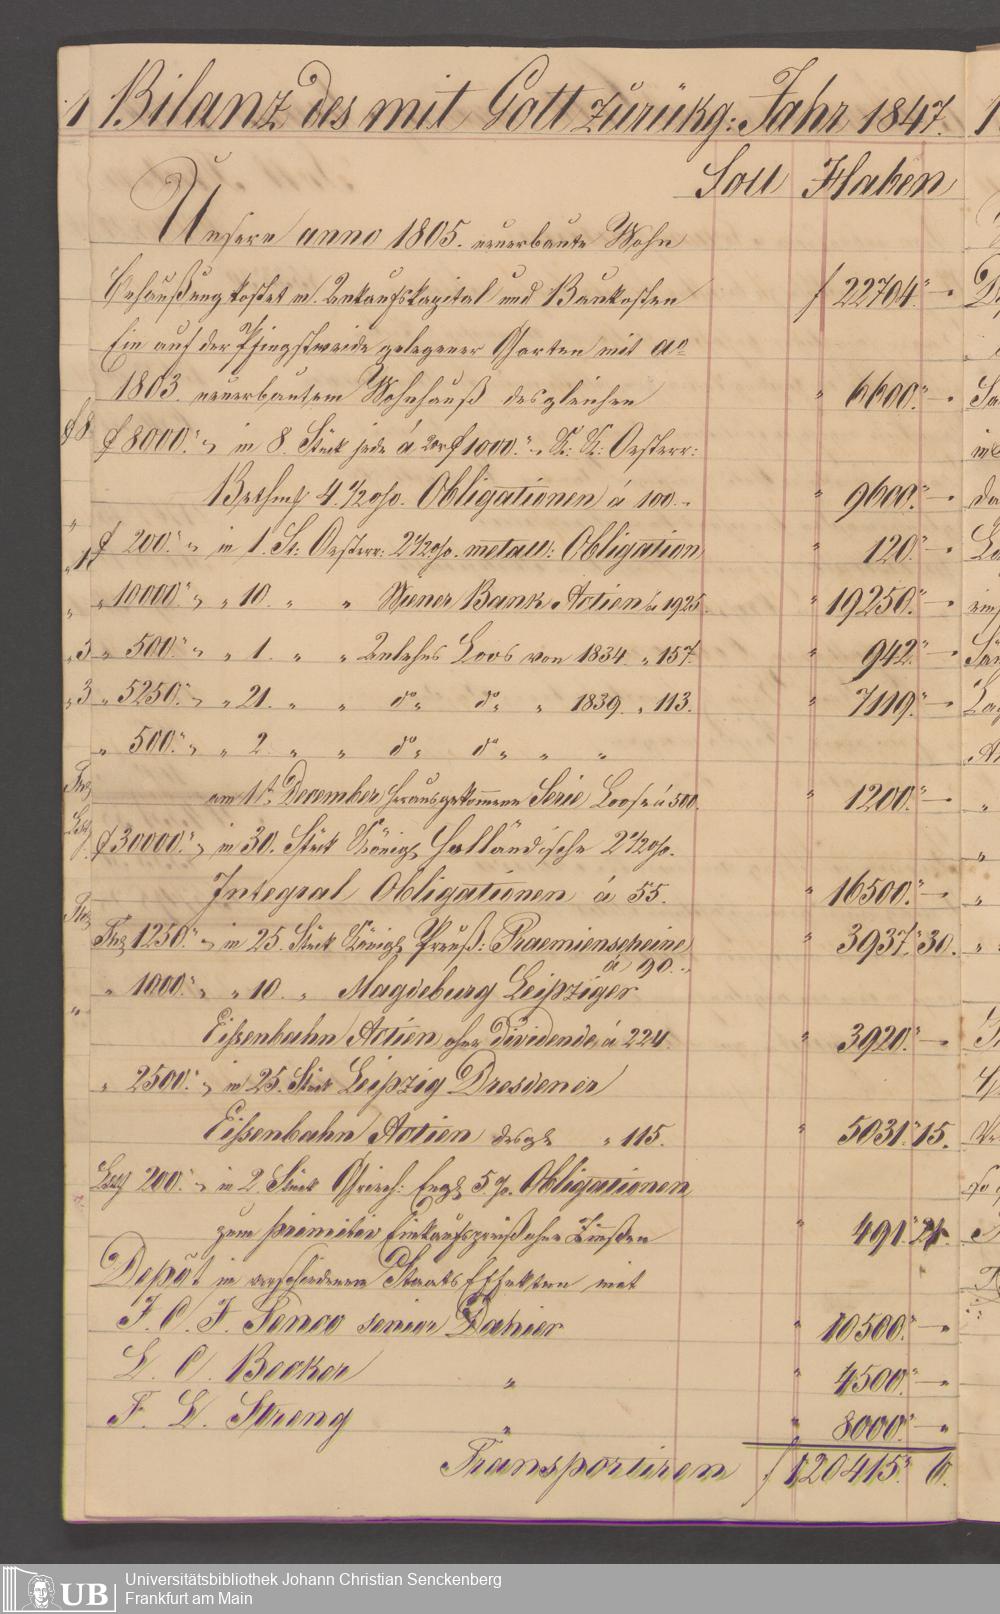 1 Bilanz des mit Gott zurükg: Jahr 1847.
Soll Haben
Unsere anno 1805. neuerbaute Wohn
Behaußung kostet m. Ankaufskapital und Baukosten f 22704.″ —.
Ein auf der Pfingstweide gelegener Garten mit ao
1803 neuerbautem Wohnhauß desgleichen ″ 6600.″ —.
f 8000.″ in 8. Stück jede á f 1000.″ K: K: Oesterr:
Bethm. 4.1/2 o/o. Obligationen á 100. ″ 9600.″ —.
f 200.″ in 1. St: Oesterr: 2 1/2 o/o. metall: Obligation ″ 120.″ —.
″ 10000.″ ″ 10. ″ ″ Wiener Bank Actien á 1925. ″ 19250.″ —.
″ 500.″ ″ 1. ″ ″ Anlehns Loos von 1834 ″ 157. ″ 942.″ —.
″ 5250.″ ″ 21. ″ ″ do ″ do ″ ″ 1839. ″ 113. ″ 7119.″ —.
″ 500.″ ″ 2. ″ ″ do ″ do ″ ″ ″
am 1t. December herausgekommene Serie Loose á 500. ″ 1200.″ —.
f 30000.″ in 30. Stück Königl Holländische 2 1/2 o/o.
Integral Obligationen á 55. ″ 16500.″ —.
1250.″ in 25. Stück Königl Preuß: Praemienscheine ″ 3937.″ 30.
á 90.
″ 1000.″ ″ 10. ″ Magdeburg Leipziger
Eißenbahn Actien ohne Dividende á 224. ″ 3920.″ —.
″ 2500.″ in 25. Stück Leipzig Dresdener
Eißenbahn Actien desgl ″ 115. ″ 5031.″ 15.
200.″ in 2. Stück Griech: Engl 5 %. Obligationen
zum primitiv Einkaufspreiß ohne Zinßen ″ 491.″
Depôt in verschiedenen Staats Effekten mit
J. C. F. Senior Dahier ″ 10500.″ —.
L. C. Becker ″ ″ 4500.″ —.
F. L. Streng ″ ″ 8000.″ —.
Transportiren f 120415.″ 6.
UB
Universitätsbibliothek Johann Christian Senckenberg
Frankfurt am Main